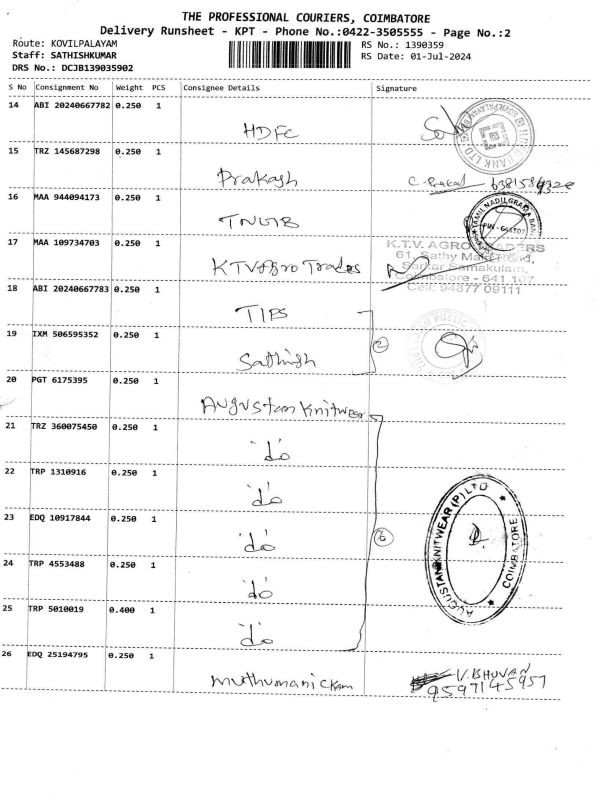 THE PROFESSIONAL COURIERS, COIMBATORE
Delivery Runsheet - KPT - Phone No.:0422-3505555 - Page No.:2
Route: KOVILPALAYAM RS No.: 1390359
Staff: SATHISHKUMAR RS Date: 01-Jul-2024
DRS No.: DCJB139035902
S No Consignment No Weight PCS Consignee Details Signature
14 ABI 20240667782 0.250 1
HDFC
15 TRZ 145687298 0.250 1
Prakash C. Prakash 6381584328
16 MAA 944094173 0.250 1
TNUIB TAMIL NADU GRAMA BANK
17 MAA 109734703 0.250 1
KTV Agro Trades K.T.V. AGRO TRADERS
61, Sathy Main Road,
Sarkar Samakulam,
Coimbatore - 641 107
Cell: 94877 09111
18 ABI 20240667783 0.250 1
TIPS
19 IXM 506595352 0.250 1 2
Sathish
20 PGT 6175395 0.250 1
Augustan Knitwear
21 TRZ 360075450 0.250 1
do
22 TRP 1310916 0.250 1
do
23 EDQ 10917844 0.250 1 6
do AUGUSTAN KNITWEAR (P) LTD COIMBATORE
24 TRP 4553488 0.250 1
do
25 TRP 5010019 0.400 1
do
26 EDQ 25194795 0.250 1
Muthumanickam V. BHUVAN
9597145957